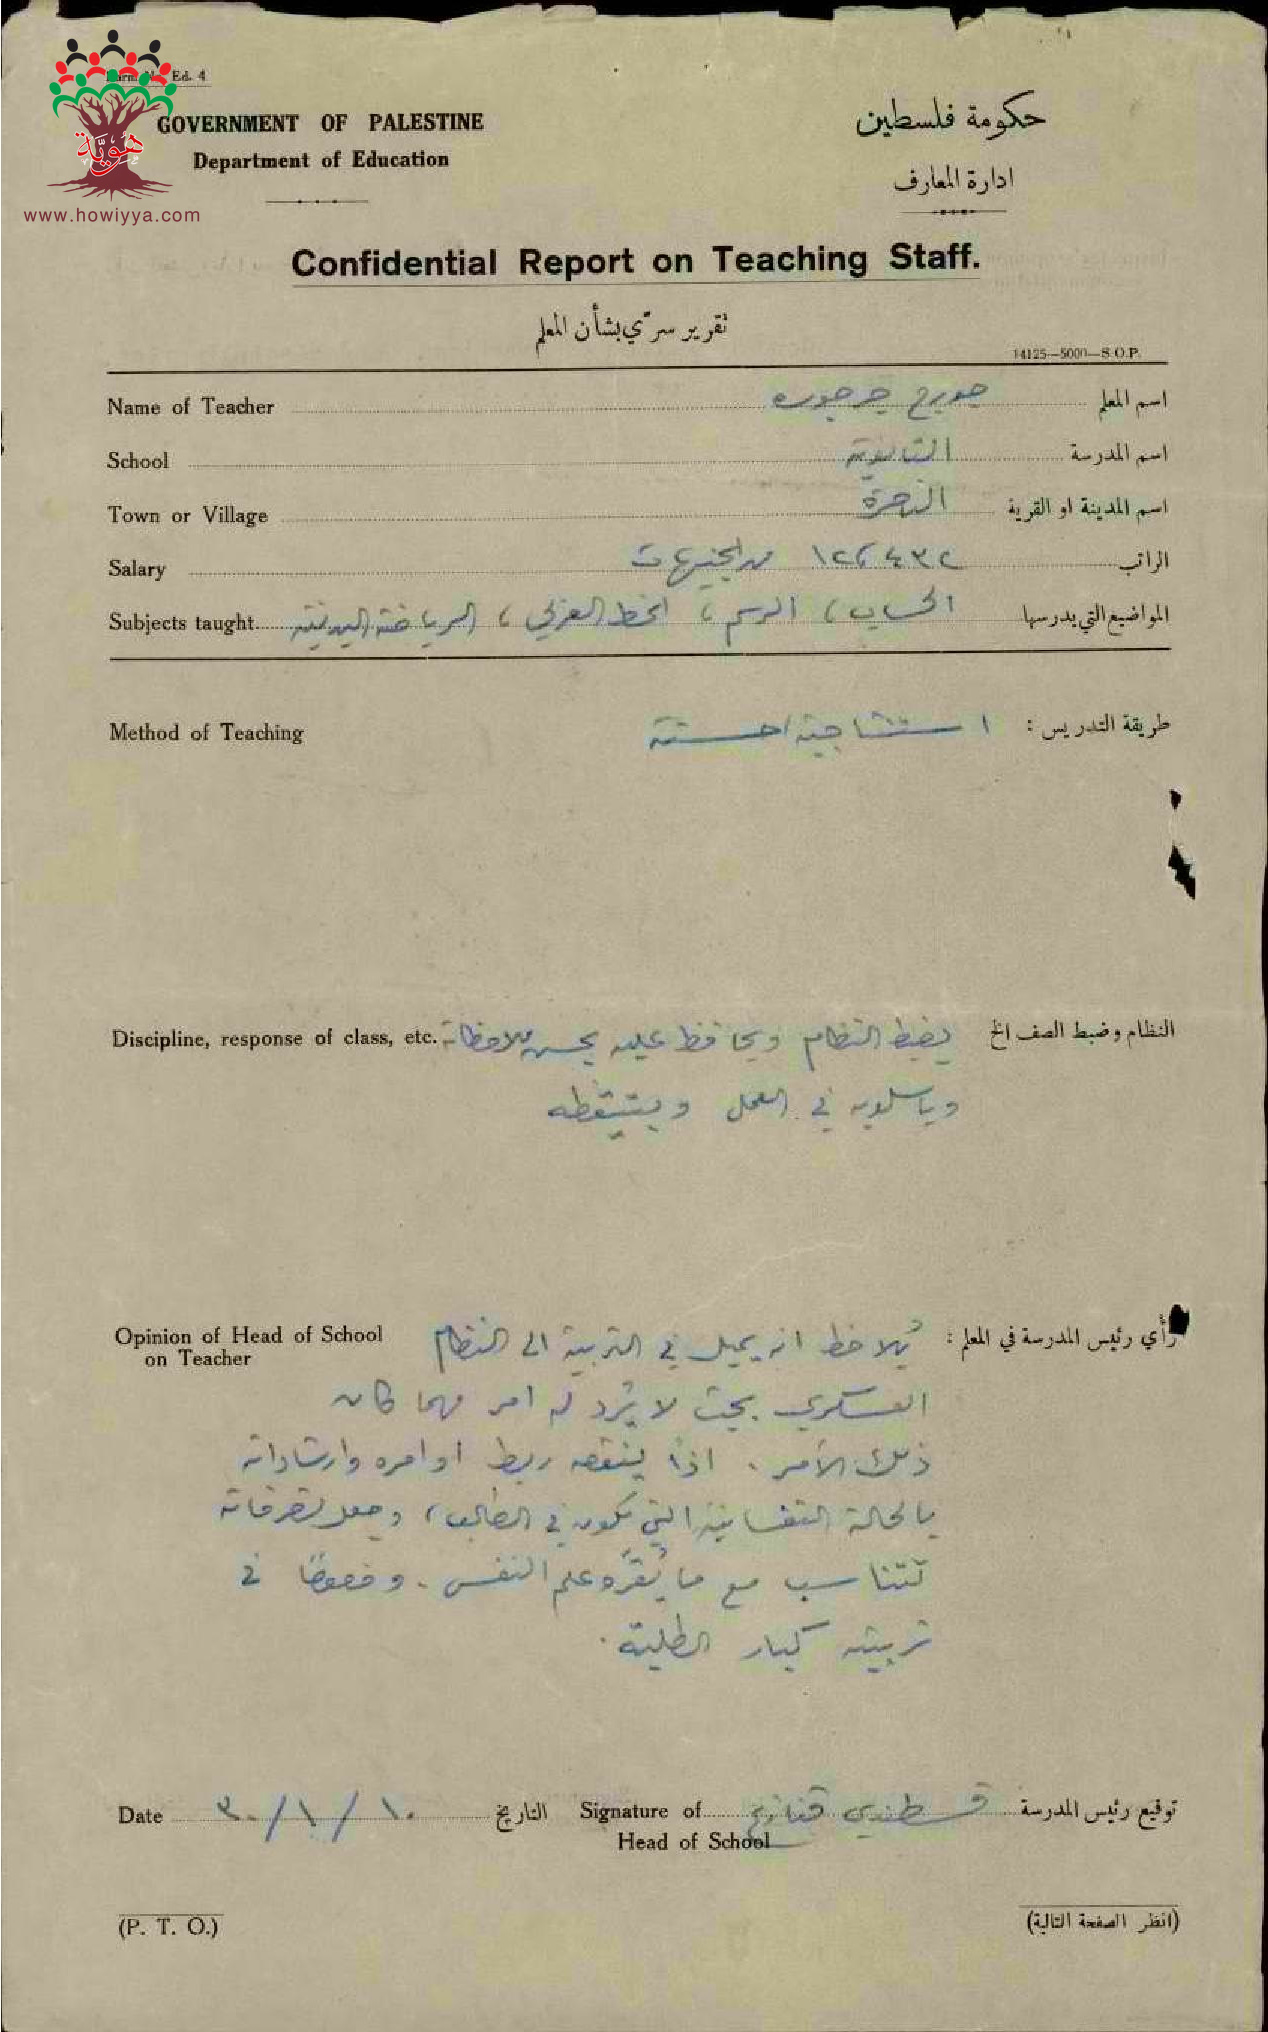 Ed. 4
هَويَّة
www.howiyya.com
GOVERNMENT OF PALESTINE
حكومة فلسطين
Department of Education
ادارة المعارف
Confidential Report on Teaching Staff.
تقرير سرّي بشأن المعلم
14125—5000—S.O.P.
Name of Teacher جورج اسم المعلم
School الثانوية اسم المدرسة
Town or Village الناصرة اسم المدينة او القرية
Salary من الجنيهات الراتب
Subjects taught المواضيع التي يدرسها الحساب، الرسم، الخط العربي، الرياضة البدنية
Method of Teaching طريقة التدريس : استنتاجية حسنة
Discipline, response of class, etc. النظام وضبط الصف الخ يضبط النظام ويحافظ عليه بحسن ملاحظاته
وباسلوبه في العمل وبتيقظه
Opinion of Head of School
on Teacher
رأي رئيس المدرسة في المعلم : يُلاحظ انه يميل في التربية الى النظام
العسكري بحيث لا يُرد له امر مهما كان
ذلك الأمر. اذاً ينقصه ربط اوامره وارشاداته
بالحالة النفسانية التي تكون في الطالب، وجعل تصرفاته
تتناسب مع ما يُقرّه علم النفس. وخصوصًا في
تربيته كبار الطلبة.
Date ٣٠/١/١٠ التاريخ
Signature of
Head of School
قسطندي قنازع توقيع رئيس المدرسة
(P. T. O.)
(انظر الصفحة التالية)